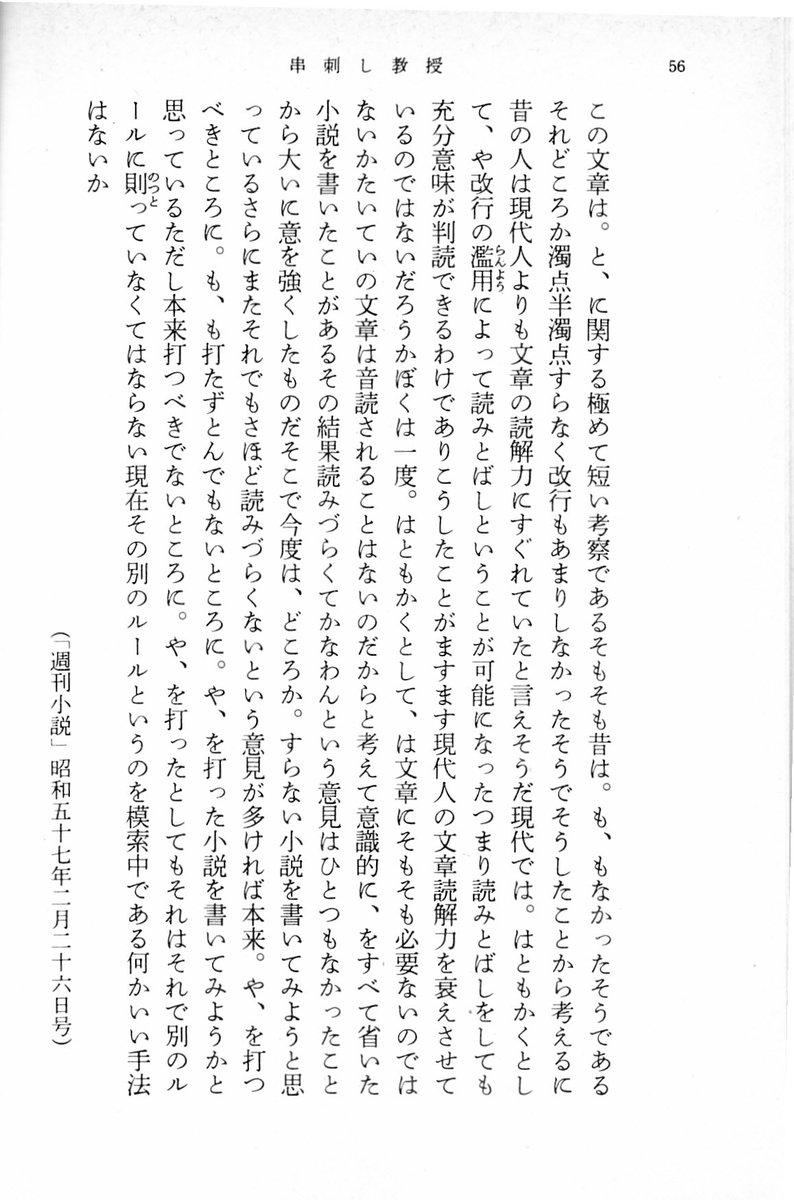 串刺し教授
56
この文章は。と、に関する極めて短い考察であるそもそも昔は。も、もなかったそうである
それどころか濁点半濁点すらなく改行もあまりしなかったそうでそうしたことから考えるに
昔の人は現代人よりも文章の読解力にすぐれていたと言えそうだ現代では。はともかくとし
て、や改行の濫用によって読みとばしということが可能になったつまり読みとばしをしても
らんよう
充分意味が判読できるわけでありこうしたことがますます現代人の文章読解力を衰えさせて
いるのではないだろうかぼくは一度。はともかくとして、は文章にそもそも必要ないのでは
ないかたいていの文章は音読されることはないのだからと考えて意識的に、をすべて省いた
小説を書いたことがあるその結果読みづらくてかなわんという意見はひとつもなかったこと
から大いに意を強くしたものだそこで今度は、どころか。すらない小説を書いてみようと思
っているさらにまたそれでもさほど読みづらくないという意見が多ければ本来。や、を打つ
べきところに。も、も打たずとんでもないところに。や、を打った小説を書いてみようかと
思っているただし本来打つべきでないところに。や、を打ったとしてもそれはそれで別のル
ールに則っていなくてはならない現在その別のルールというのを模索中である何かいい手法
のつと
はないか
(「週刊小説」昭和五十七年二月二十六日号)